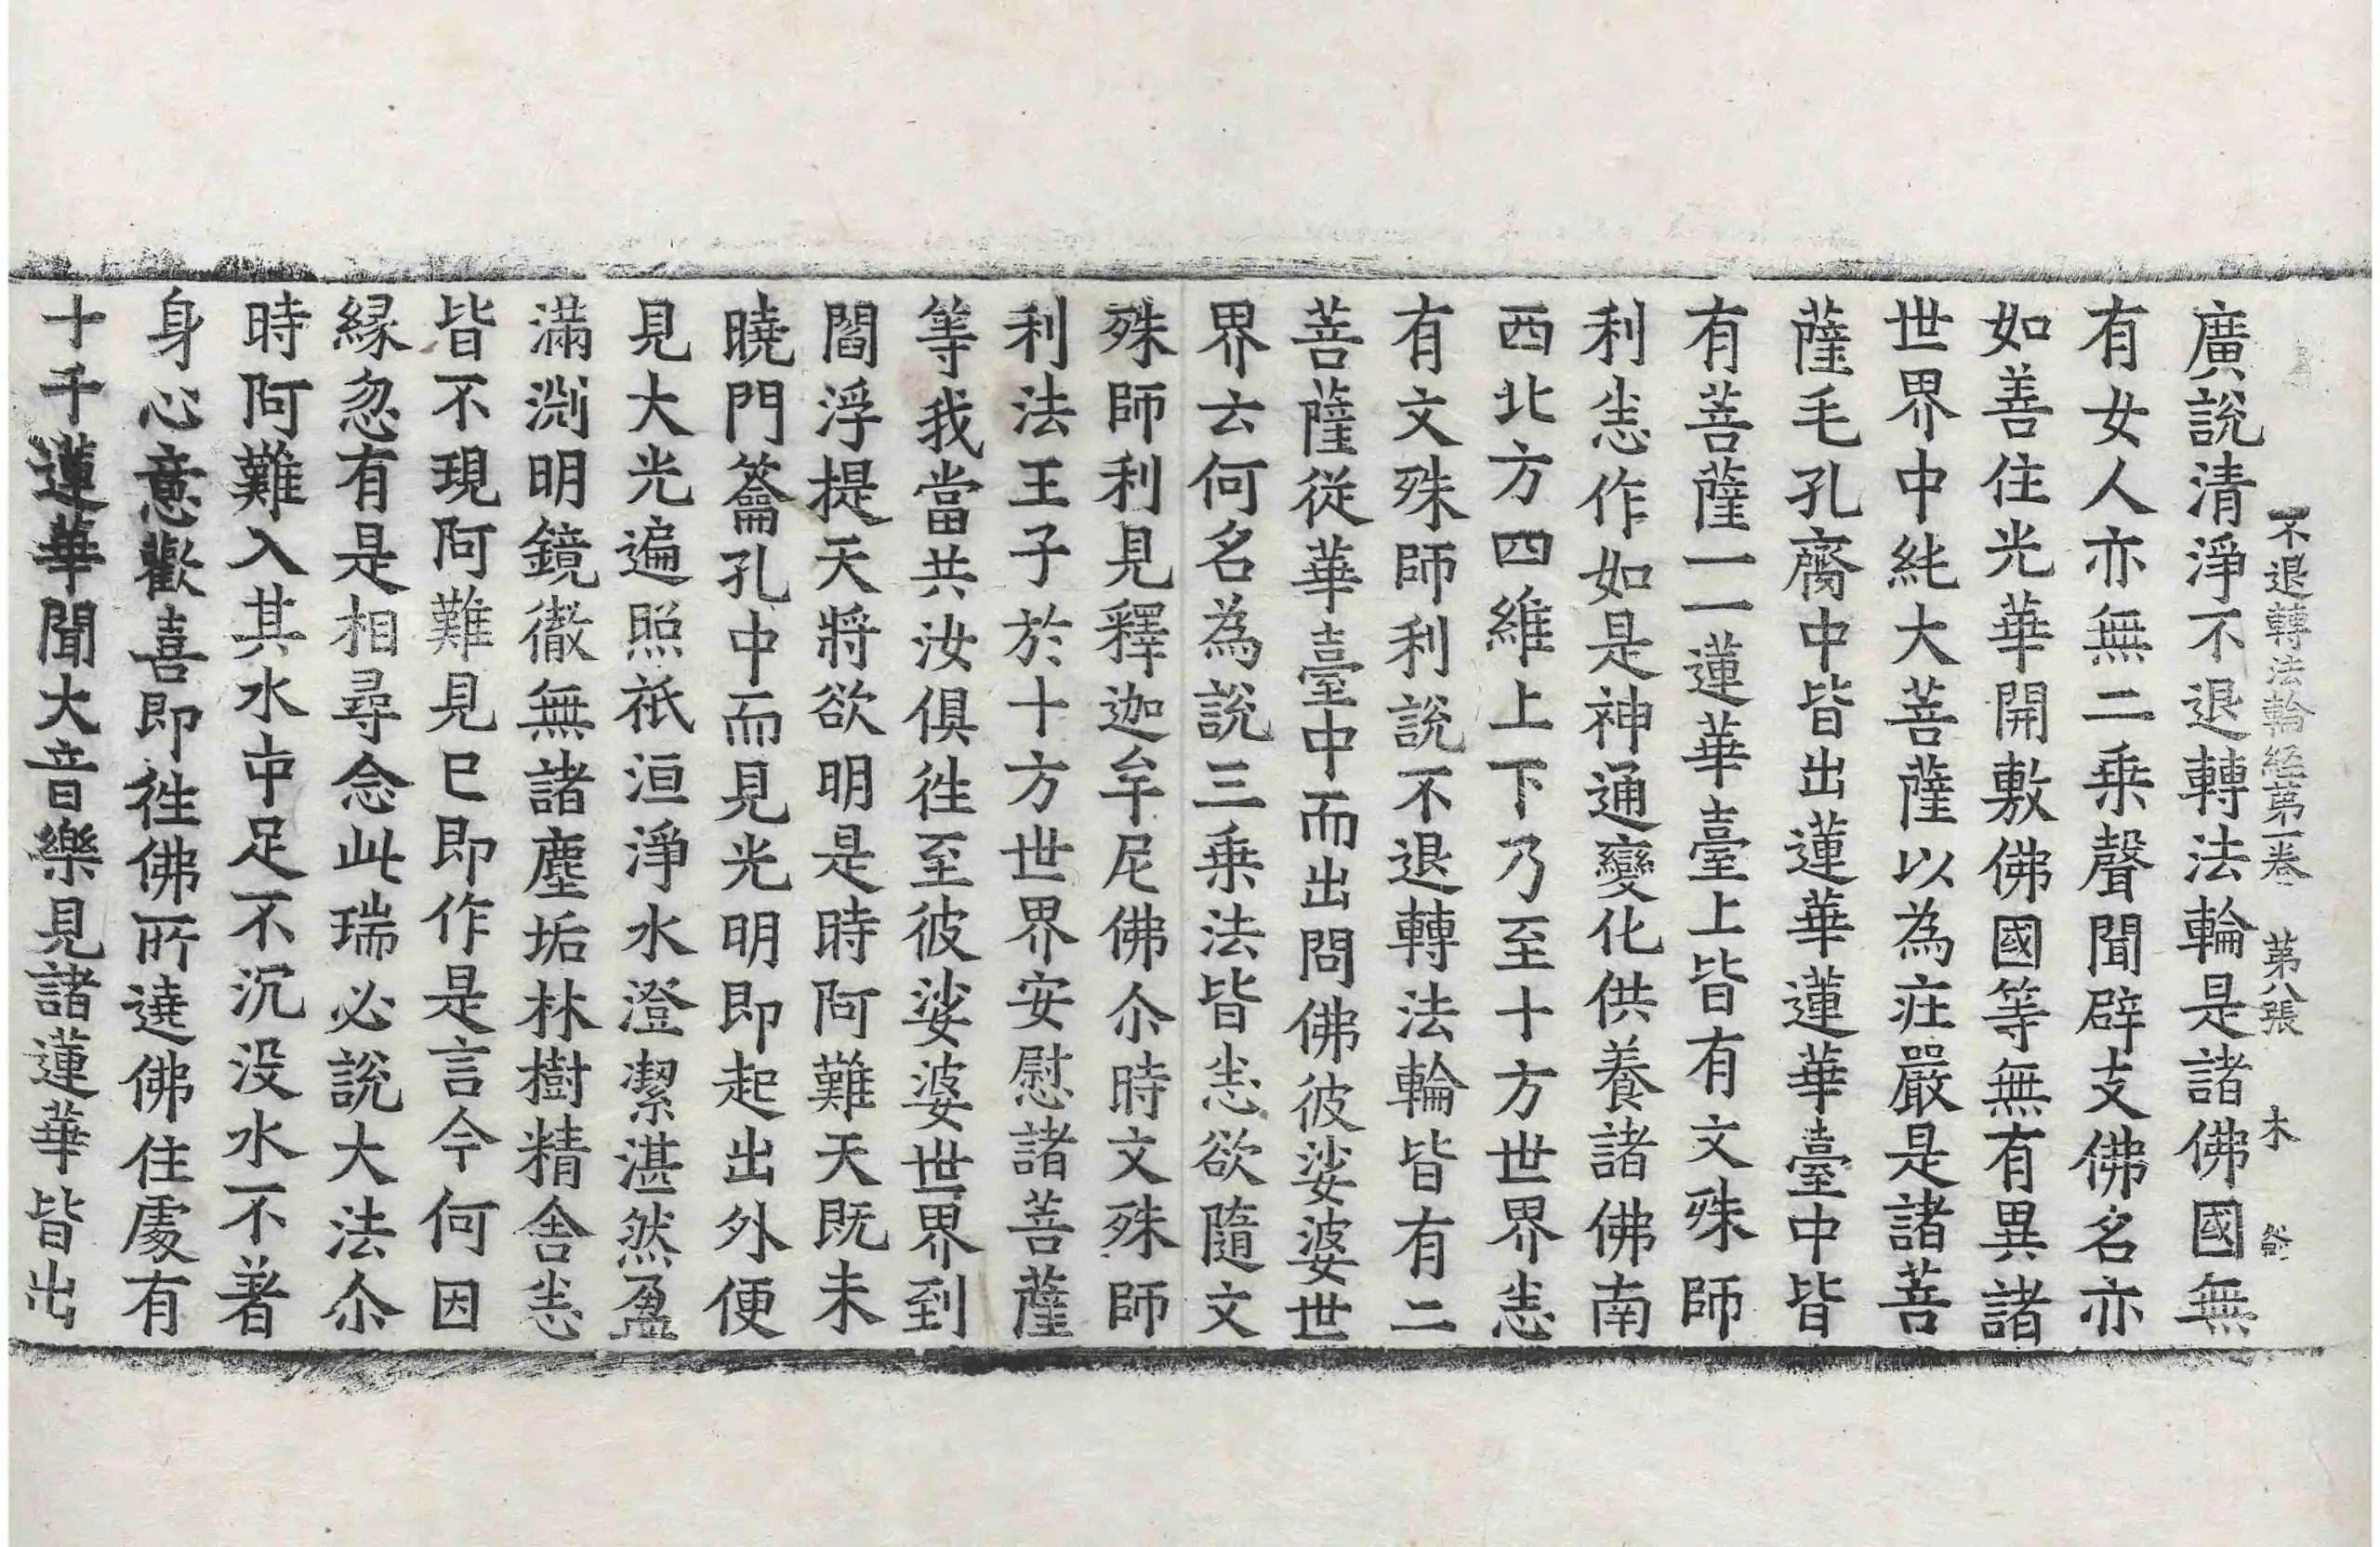 不退轉法輪經第一卷 第八張 木
廣說清淨不退轉法輪是諸佛國無
有女人亦無二乗聲聞辟支佛名亦
如善住光華開敷佛國等無有異諸
世界中純大菩薩以為莊嚴是諸菩
薩毛孔齋中皆出蓮華蓮華臺中皆
有菩薩一一蓮華臺上皆有文殊師
利㤙作如是神通變化供養諸佛南
西北方四維上下乃至十方世界㤙
有文殊師利說不退轉法輪皆有二
菩薩從華臺中而出問佛彼娑婆世
界云何名為說三乗法皆㤙欲隨文
殊師利見釋迦牟尼佛尒時文殊師
利法王子於十方世界安慰諸菩薩
等我當共汝俱徃至彼娑婆世界到
閻浮提天將欲明是時阿難天既未
曉門籥孔中而見光明即起出外便
見大光遍照祇洹淨水澄潔湛然盈
滿渕明鏡徹無諸塵垢林樹精舍㤙
皆不現阿難見已即作是言今何因
縁忽有是相尋念此瑞必說大法尒
時阿難入其水中足不沉没水不著
身心意歡喜即徃佛所遶佛住處有
十千蓮華聞大音樂見諸蓮華皆出